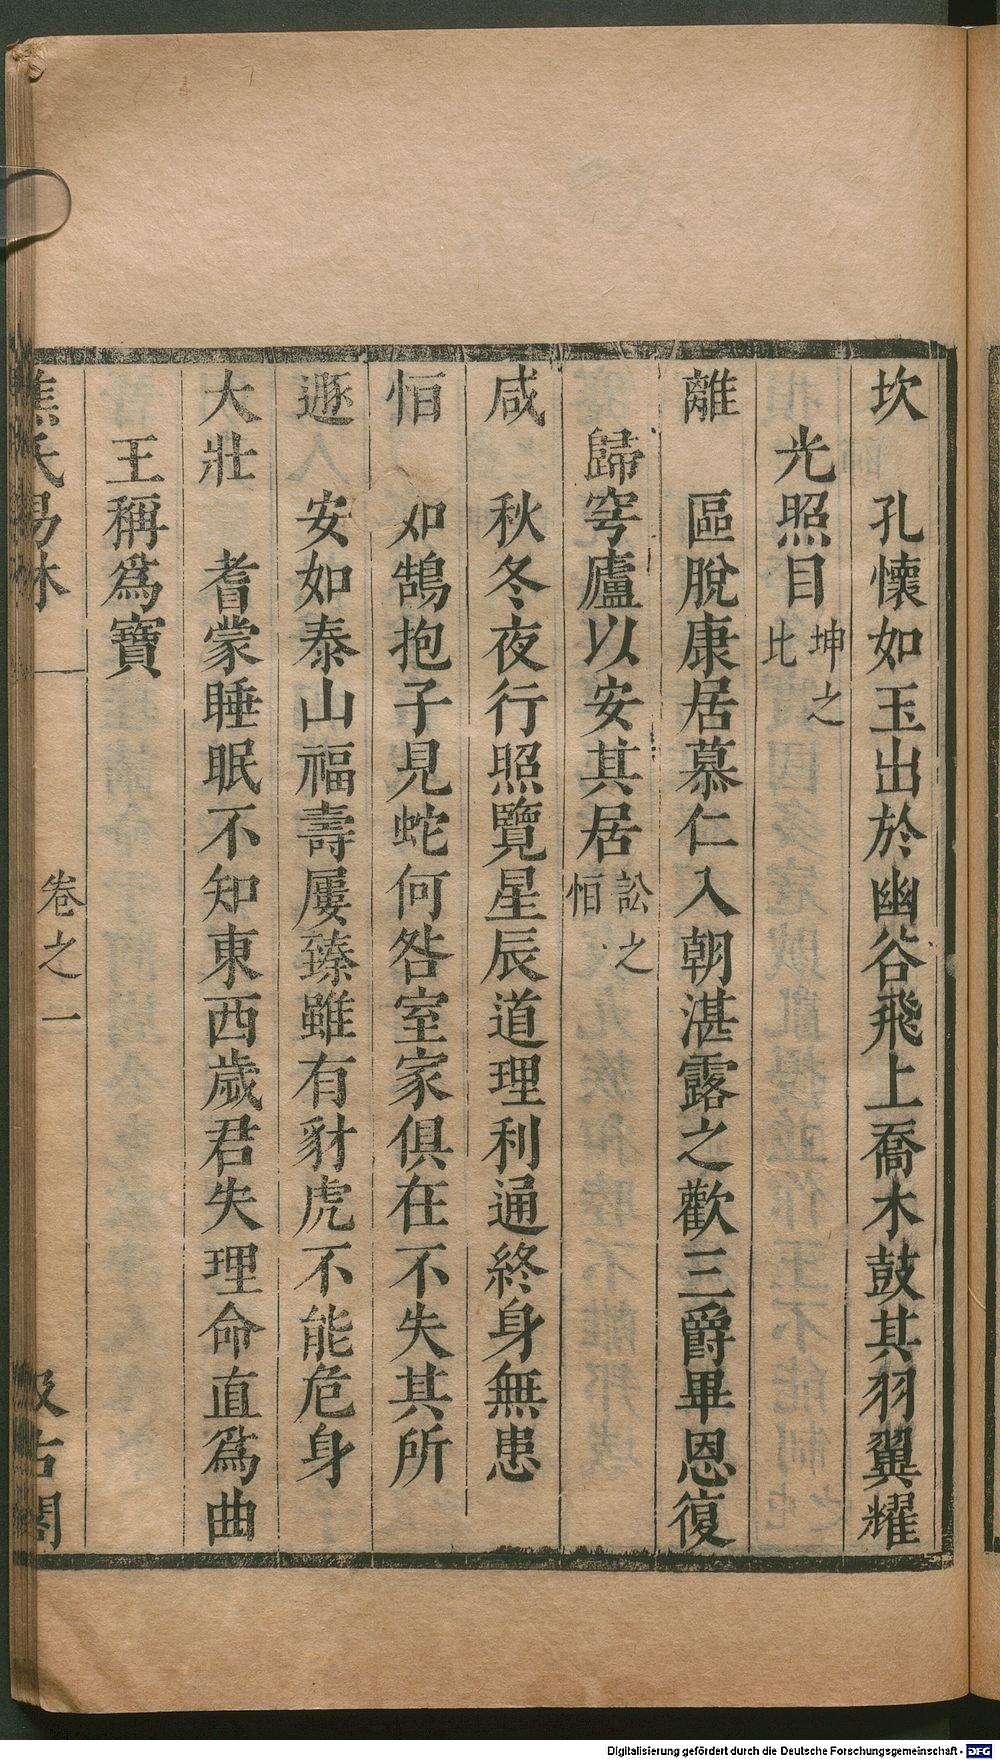 坎　孔懷如玉出於幽谷飛上喬木鼓其羽翼耀
光照目坤之比
離　區脫康居慕仁入朝湛露之歡三爵畢恩復
歸穹廬以安其居訟之恒
咸　秋冬夜行照覽星辰道理利通終身無患
恒　如鵠抱子見蛇何咎室家俱在不失其所
遯　安如泰山福壽屢臻雖有豺虎不能危身
大壯　耆蒙睡眠不知東西歲君失理命直爲曲
王稱爲寶
焦氏易林　卷之一　汲古閣
Digitalisierung gefördert durch die Deutsche Forschungsgemeinschaft - DFG